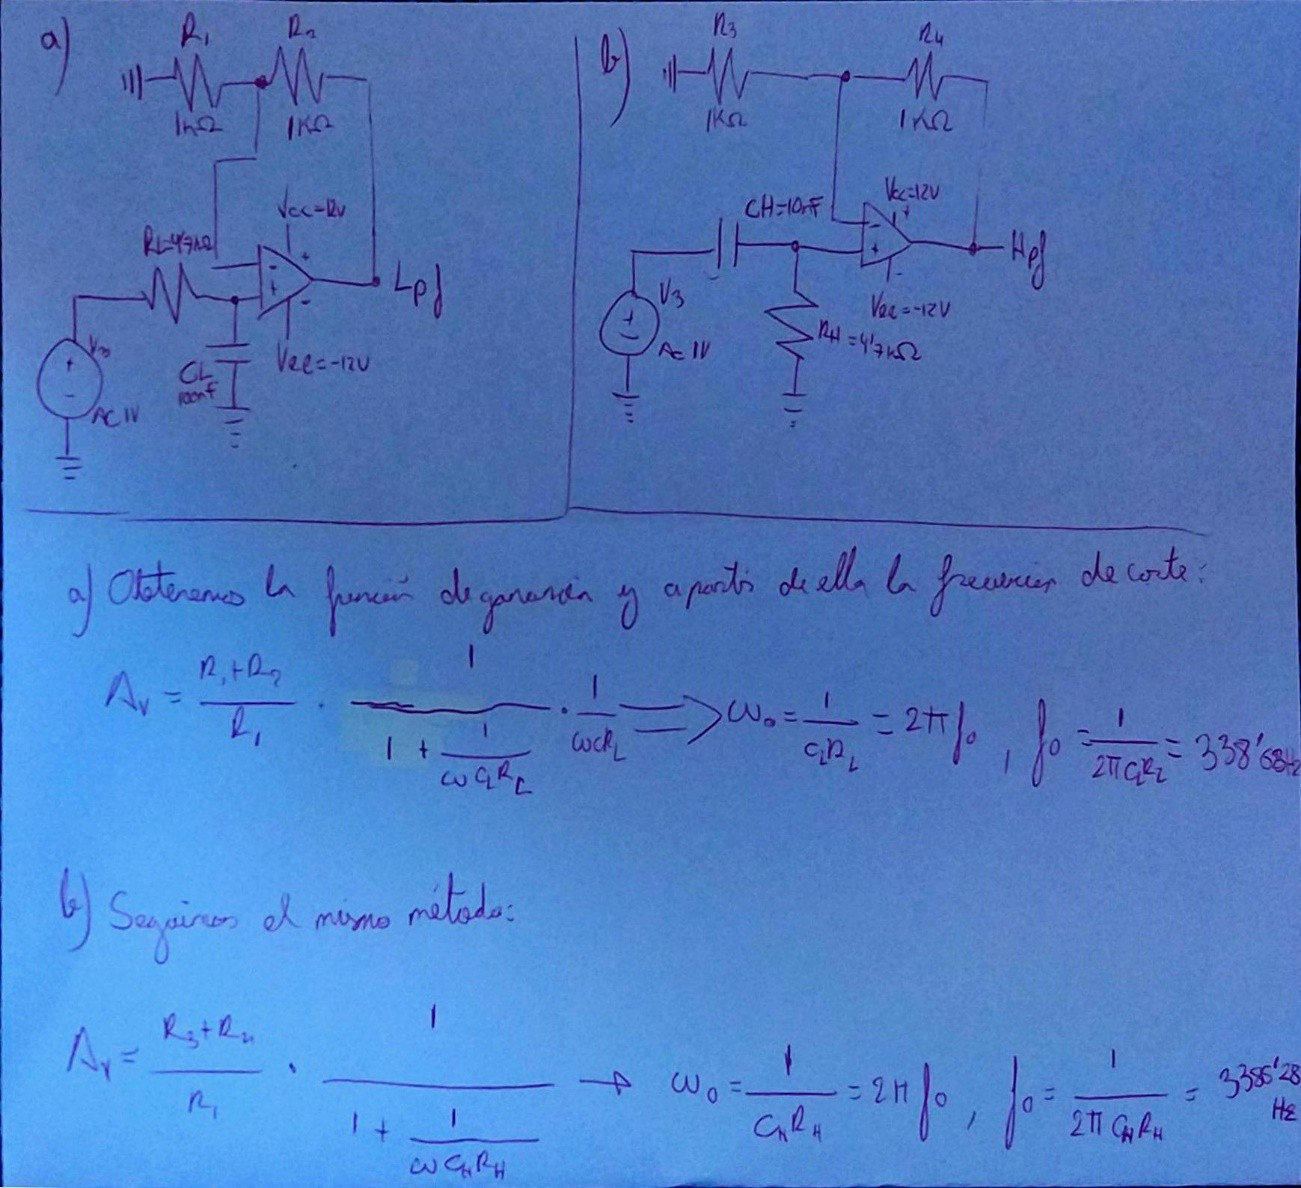 a)
R₁
R₂
1KΩ
1KΩ
Vcc=12V
RL=4'7KΩ
Lpf
V₃
AC 1V
CL
100nF
Vee=-12V
b)
R₃
R₄
1KΩ
1KΩ
CH=10nF
Vcc=12V
Hpf
V₃
AC 1V
Vee=-12V
RH=4'7KΩ
a) Obtenemos la función de ganancia y a partir de ella la frecuencia de corte:
Av = (R₁+R₂)/R₁ · 1/(1 + 1/(ωC_LR_L)) · 1/(ωCR_L) ⟹ ω₀ = 1/(C_LR_L) = 2πf₀ , f₀ = 1/(2πC_LR_L) = 338'63Hz
b) Seguimos el mismo método:
Av = (R₃+R₄)/R₁ · 1/(1 + 1/(ωC_HR_H)) → ω₀ = 1/(C_HR_H) = 2πf₀ , f₀ = 1/(2πC_HR_H) = 3386'28 Hz